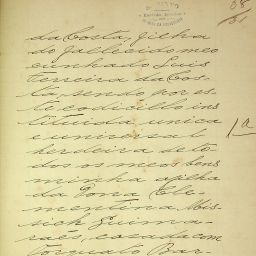 38
31
da Costa, filha
do fallecido meo
cunhado Luis
Ferreira da Cos-
ta, sendo por es-
te codicillo ins-
tituida unica
e universal
herdeira de to-
dos os meos bens
minha afilha
da Dona Cle-
mentina Mis-
sick Guima-
rães, casada com
Torquato Bar-